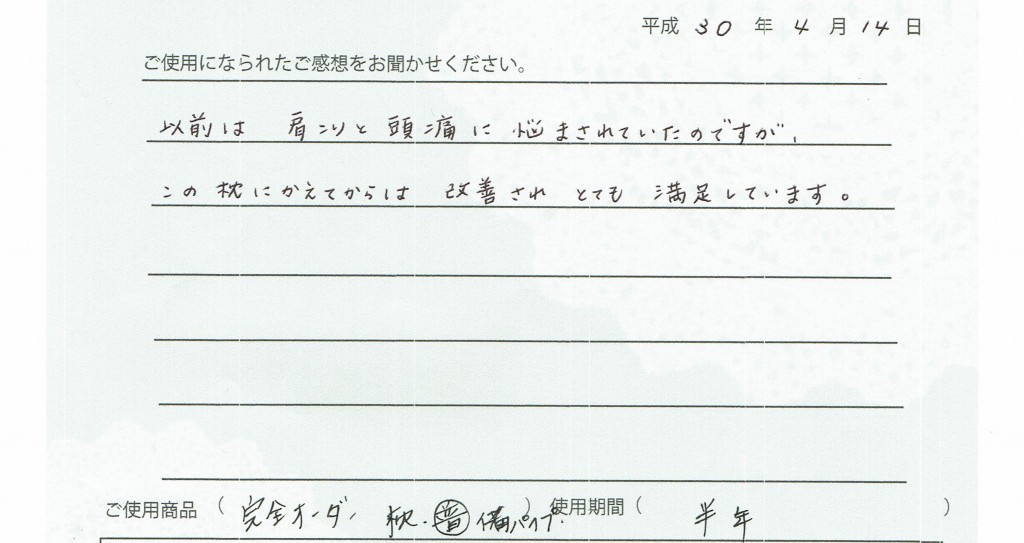 平成 30 年 4 月 14 日
ご使用になられたご感想をお聞かせください。
以前は 肩こりと 頭痛に 悩まされていたのですが、
この枕にかえてからは 改善され とても 満足しています。
ご使用商品 ( 完全オーダー 枕・ 備パイプ ) 使用期間 ( 半年 )